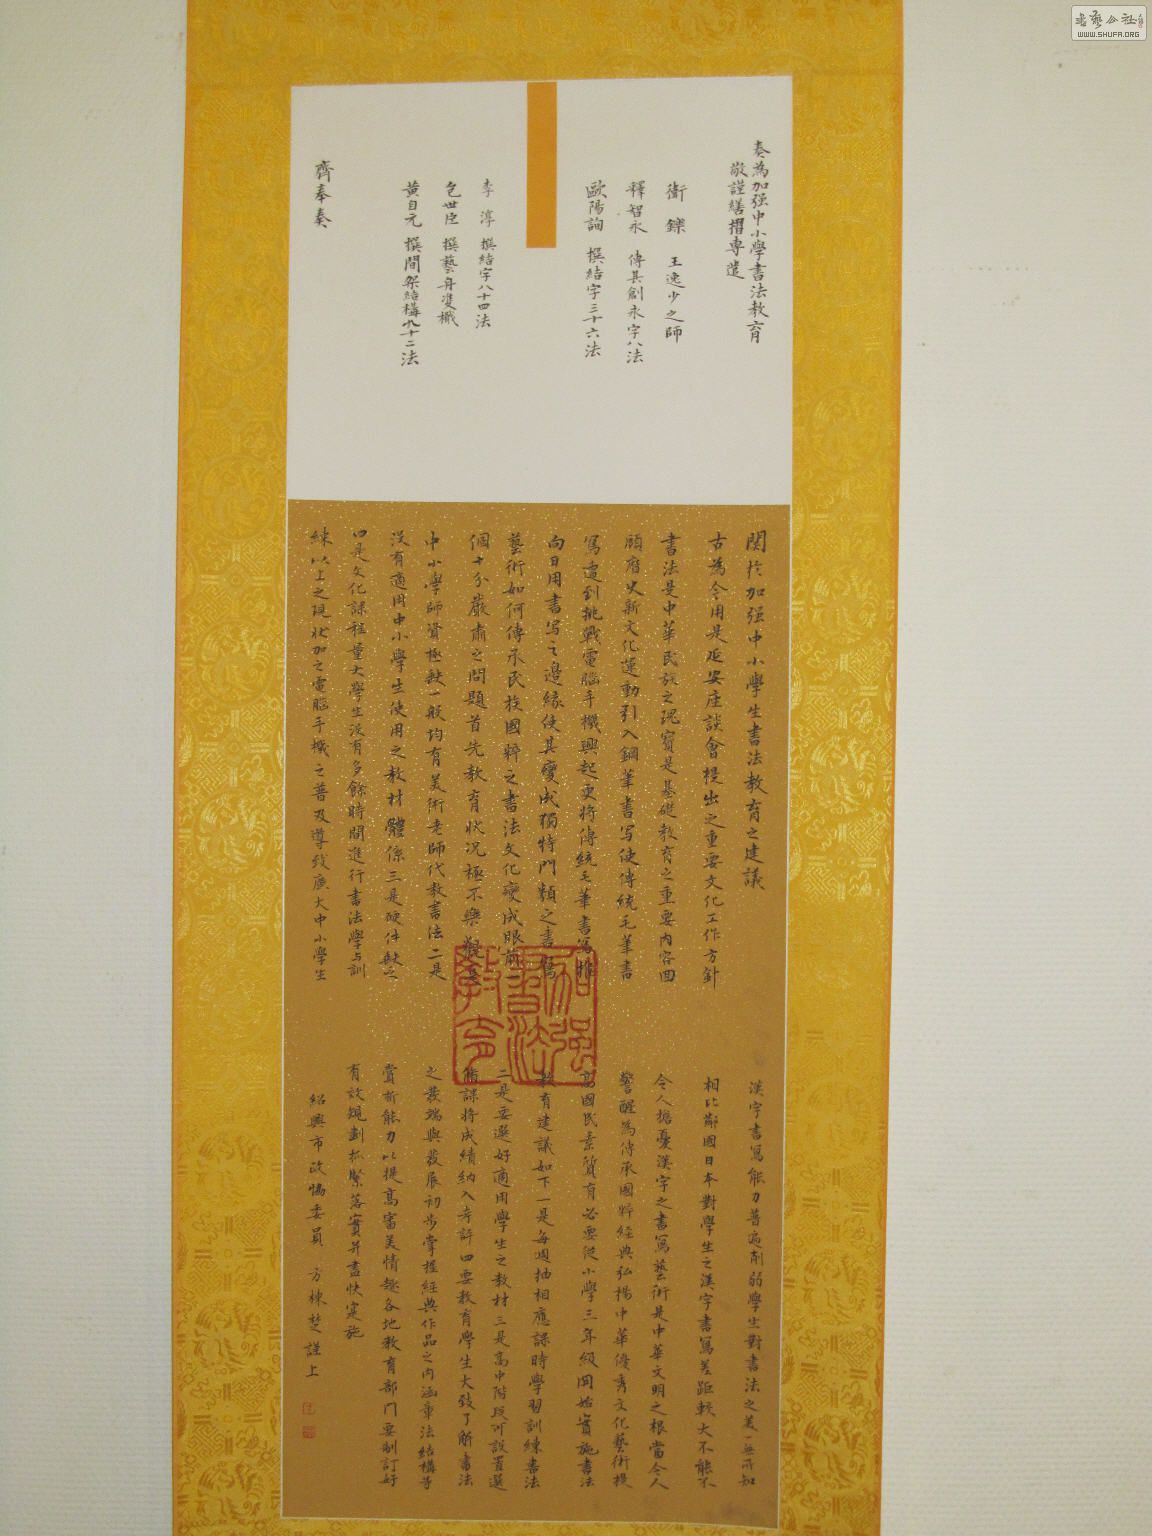 書藝公社
WWW.SHUFA.ORG
奏為加强中小學書法教育
敬謹繕摺專遞
衛鑠 王逸少之師
釋智永 傳其創永字八法
歐陽詢 撰結字三十六法
李淳 撰結字八十四法
包世臣 撰藝舟雙楫
黄自元 撰間架結構九十二法
齊奉奏
関於加强中小學生書法教育之建議
古為今用是延安座談會提出之重要文化工作方針
書法是中華民族之瑰寳是基礎教育之重要内容回
顧歷史新文化運動引入鋼筆書写使傳統毛筆書
寫遭到挑戰電腦手機興起更将傳統毛筆書寫推
向日用書写之邉緣使其變成獨特門類之書寫
藝術如何傳承民族國粹之書法文化變成眼前
個十分嚴肃之問題首先教育状况極不樂觀是
中小學師資極缺一般均有美術老師代教書法二是
没有適用中小學生使用之教材體係三是硬件缺乏
四是文化課程量大學生没有多餘時間進行書法學与訓
練以上之現状加之電腦手機之普及導致廣大中小學生
漢字書寫能力普遍削弱學生對書法之美一無所知
相比鄰國日本對學生之漢字書寫差距較大不能不
令人擔憂漢字之書寫藝術是中華文明之根當令人
警醒為傳承國粹經典弘揚中華優秀文化藝術提
高國民素質有必要從小學三年級開始實施書法
教育建議如下一是每週抽相應課時學習訓練書法
二是要選好適用學生之教材三是高中階段可設置選
修課将成績納入考評四要教育學生大致了解書法
之發端與發展初步掌握經典作品之内涵章法結構等
賞析能力以提高審美情趣各地教育部門要制訂好
有效規劃抓緊落實并盡快実施
紹興市政協委員 方棟楚謹上
加强書法教育